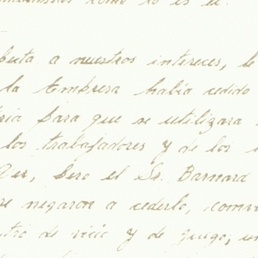 como lo es el.
a nuestros intereses, l
la Empresa había cedido
para que se utilizara
los trabajadores y de los
pero el Sr. Barnard
negaron a cederlo, conv
de vicio y de juego, un